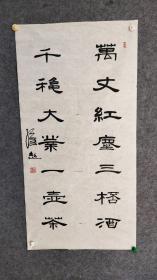 萬丈紅塵三桮酒
千秾大業一壺茶